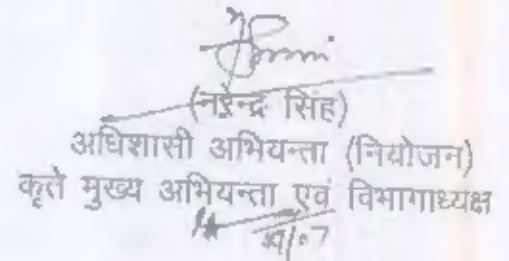 (नरेन्द्र सिंह)
अधिशासी अभियन्ता (नियोजन)
कृते मुख्य अभियन्ता एवं विभागाध्यक्ष